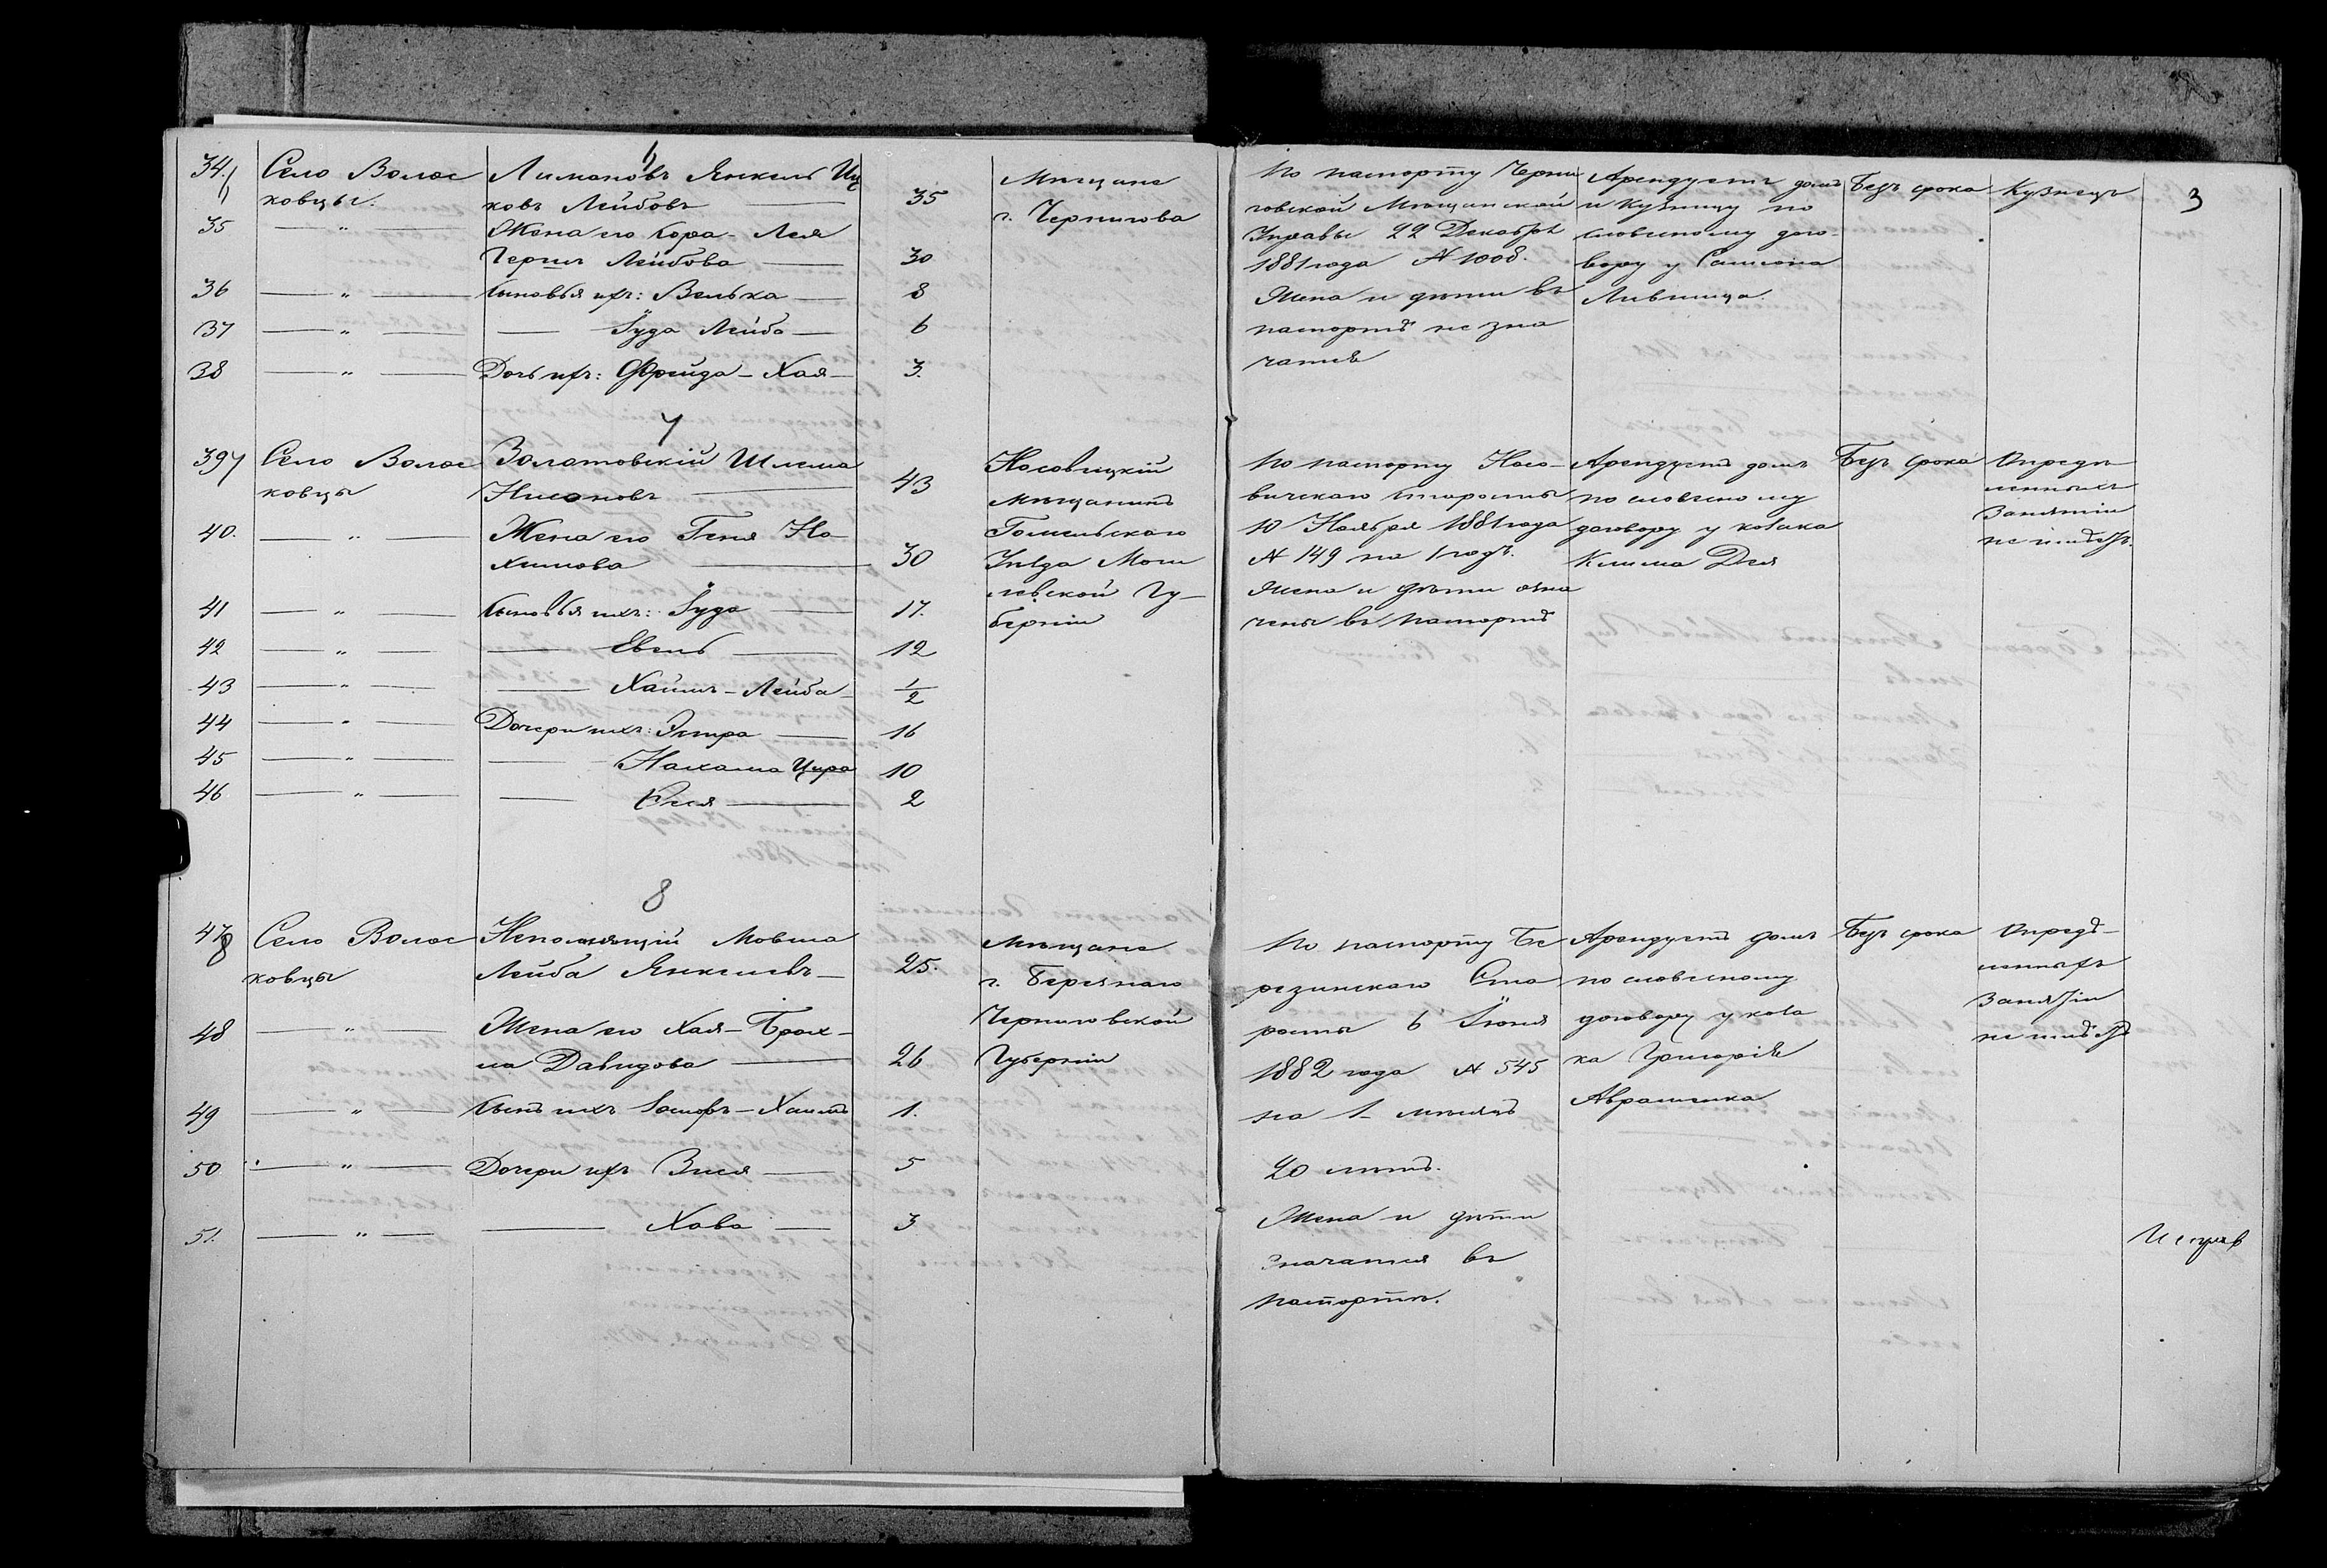 6
34.
Село Волос
ковцы.
Лимоновъ Янкель Иц
ковъ Лейбовъ
35
Мѣщане
г. Чернигова
По паспорту Черни
говской Мѣщанской
Управы 22 Декабря
1881 года № 1008.
Жена и дѣти въ
паспортѣ не зна
чатся
Арендуетъ домъ
и кузницу по
словесному дого-
вору у Самсона
Лившица.
Безъ срока
Кузнецъ
3
35
— " —
Жена его Сора - Лея
Лейбова
30
36
— " —
Сыновья ихъ: Велька
8
37
— " —
— Іуда Лейба
6
38
— " —
Дочь ихъ: Фрейда - Хая
3.
7
39
7
Село Волос
ковцы
Золотовскій Шлема
Нисоновъ
43
Носовицкій
мѣщанинъ
Гомельскаго
Уѣзда Моги
левской Гу-
берніи
По паспорту Носо-
вичскаго Старосты
10 Ноября 1881 года
№ 149 на 1 годъ.
Жена и дѣти озна
чены въ паспортѣ
Арендуетъ домъ
по словесному
договору у козака
Клима Дея
Безъ срока
Опредѣ-
ленныхъ
Занятій
не имѣетъ.
40.
— " —
Жена его Геня На-
химова
30
41
— " —
Сыновья ихъ: Іуда
17.
42
— " —
— Евель
12
43
— " —
— Хаимъ - Лейба
1/2
44
— " —
Дочери ихъ: Эстра
16
45
— " —
— Нахама Цира
10
46
— " —
—
2
8
47
8
Село Волос
ковцы
Непомнящій Мовша
Лейба Янкелевъ
25.
Мѣщане
г. Березнаго
Черниговской
Губерніи
По паспорту Бе
резинскаго Ста
росты 6 Іюня
1882 года № 545
на 1 мѣсяцъ
20 лѣтъ.
Жена и дѣти
значатся въ
паспортѣ.
Арендуетъ домъ
по словесному
договору у коза
ка Григорія
Авраменка
Безъ срока
Опредѣ-
ленныхъ
Занятій
не имѣетъ
48
— " —
Жена его Хая - Брох-
на Давидова
26
49
— " —
Сынъ ихъ Іосифъ - Хаимъ
1.
50
— " —
Дочери ихъ Зися
5
51.
— " —
— Хава
3